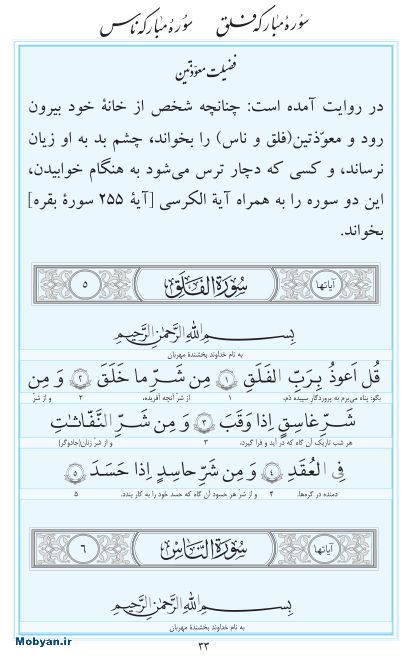 سورهٔ مبارکه فلق    سورهٔ مبارکه ناس
فضیلت معوّذتین
در روایت آمده است: چنانچه شخص از خانهٔ خود بیرون
رود و معوّذتین(فلق و ناس) را بخواند، چشم بد به او زیان
نرساند، و کسی که دچار ترس می‌شود به هنگام خوابیدن،
این دو سوره را به همراه آیة الکرسی [آیهٔ ۲۵۵ سورهٔ بقره]
بخواند.
آیاتها سُورَةُ الفَلَقِ ۵
بِسمِ اللهِ الرَّحمٰنِ الرَّحیمِ
به نام خداوند بخشندهٔ مهربان
قُل اَعوذُ بِرَبِّ الفَلَقِ ۱ مِن شَرِّ ما خَلَقَ ۲ وَ مِن
بگو: پناه می‌برم به پروردگار سپیده دم، ۱ از شرّ آنچه آفریده، ۲ و از شرّ
شَرِّ غاسِقٍ اِذا وَقَبَ ۳ وَ مِن شَرِّ النَّفّاثاتِ
هر شب تاریک آن گاه که در آید و فرا گیرد، ۳ و از شرّ زنان(جادوگر)
فِی العُقَدِ ۴ وَ مِن شَرِّ حاسِدٍ اِذا حَسَدَ ۵
دمنده در گره‌ها. ۴ و از شرّ هر حسود آن گاه که حسد خود را به کار بندد. ۵
آیاتها سُورَةُ النّاسِ ۶
بِسمِ اللهِ الرَّحمٰنِ الرَّحیمِ
به نام خداوند بخشندهٔ مهربان
۳۳
Mobyan.ir